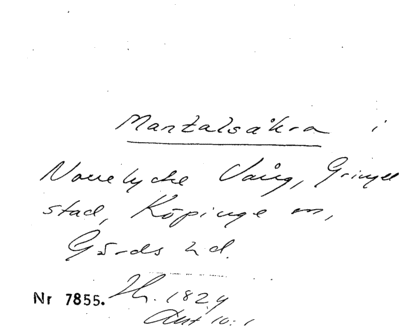 Mantalsåkra i
Nouelycke Vång, Gringel
stad, Köpinge sn,
Gärds hd.
Nr 7855. Th. 1829
Akt 10:1